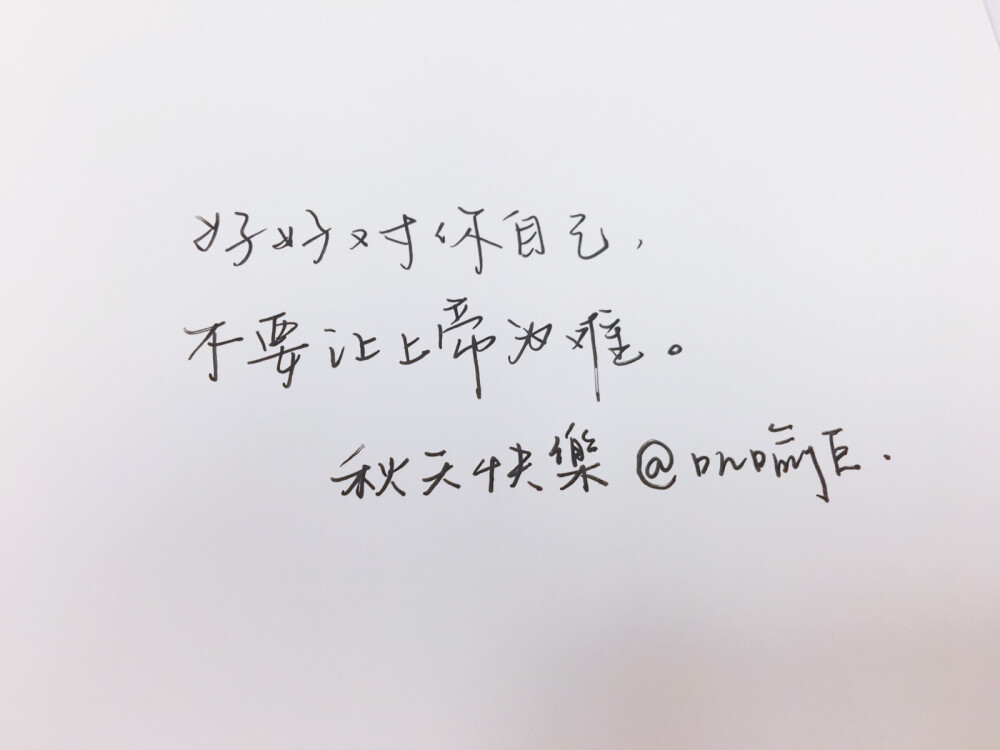 好好对你自己，
不要让上帝为难。
秋天快樂 @